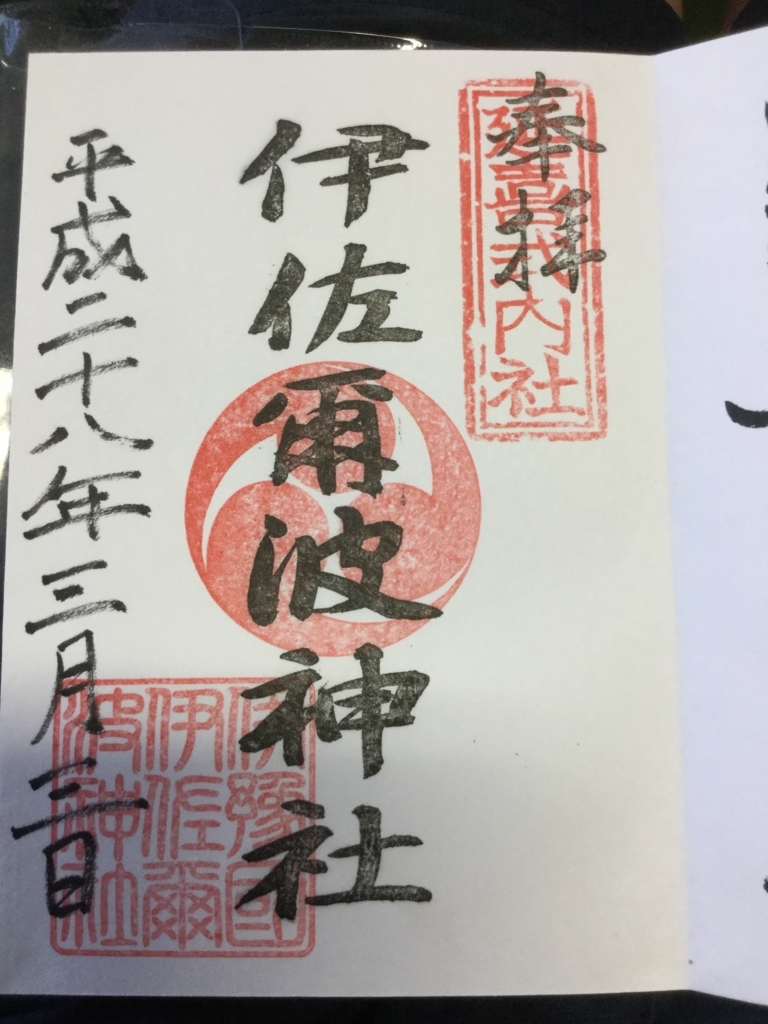 奉拝
延喜式内社
伊佐爾波神社
平成二十八年三月三日
伊豫國
伊佐爾
波神社